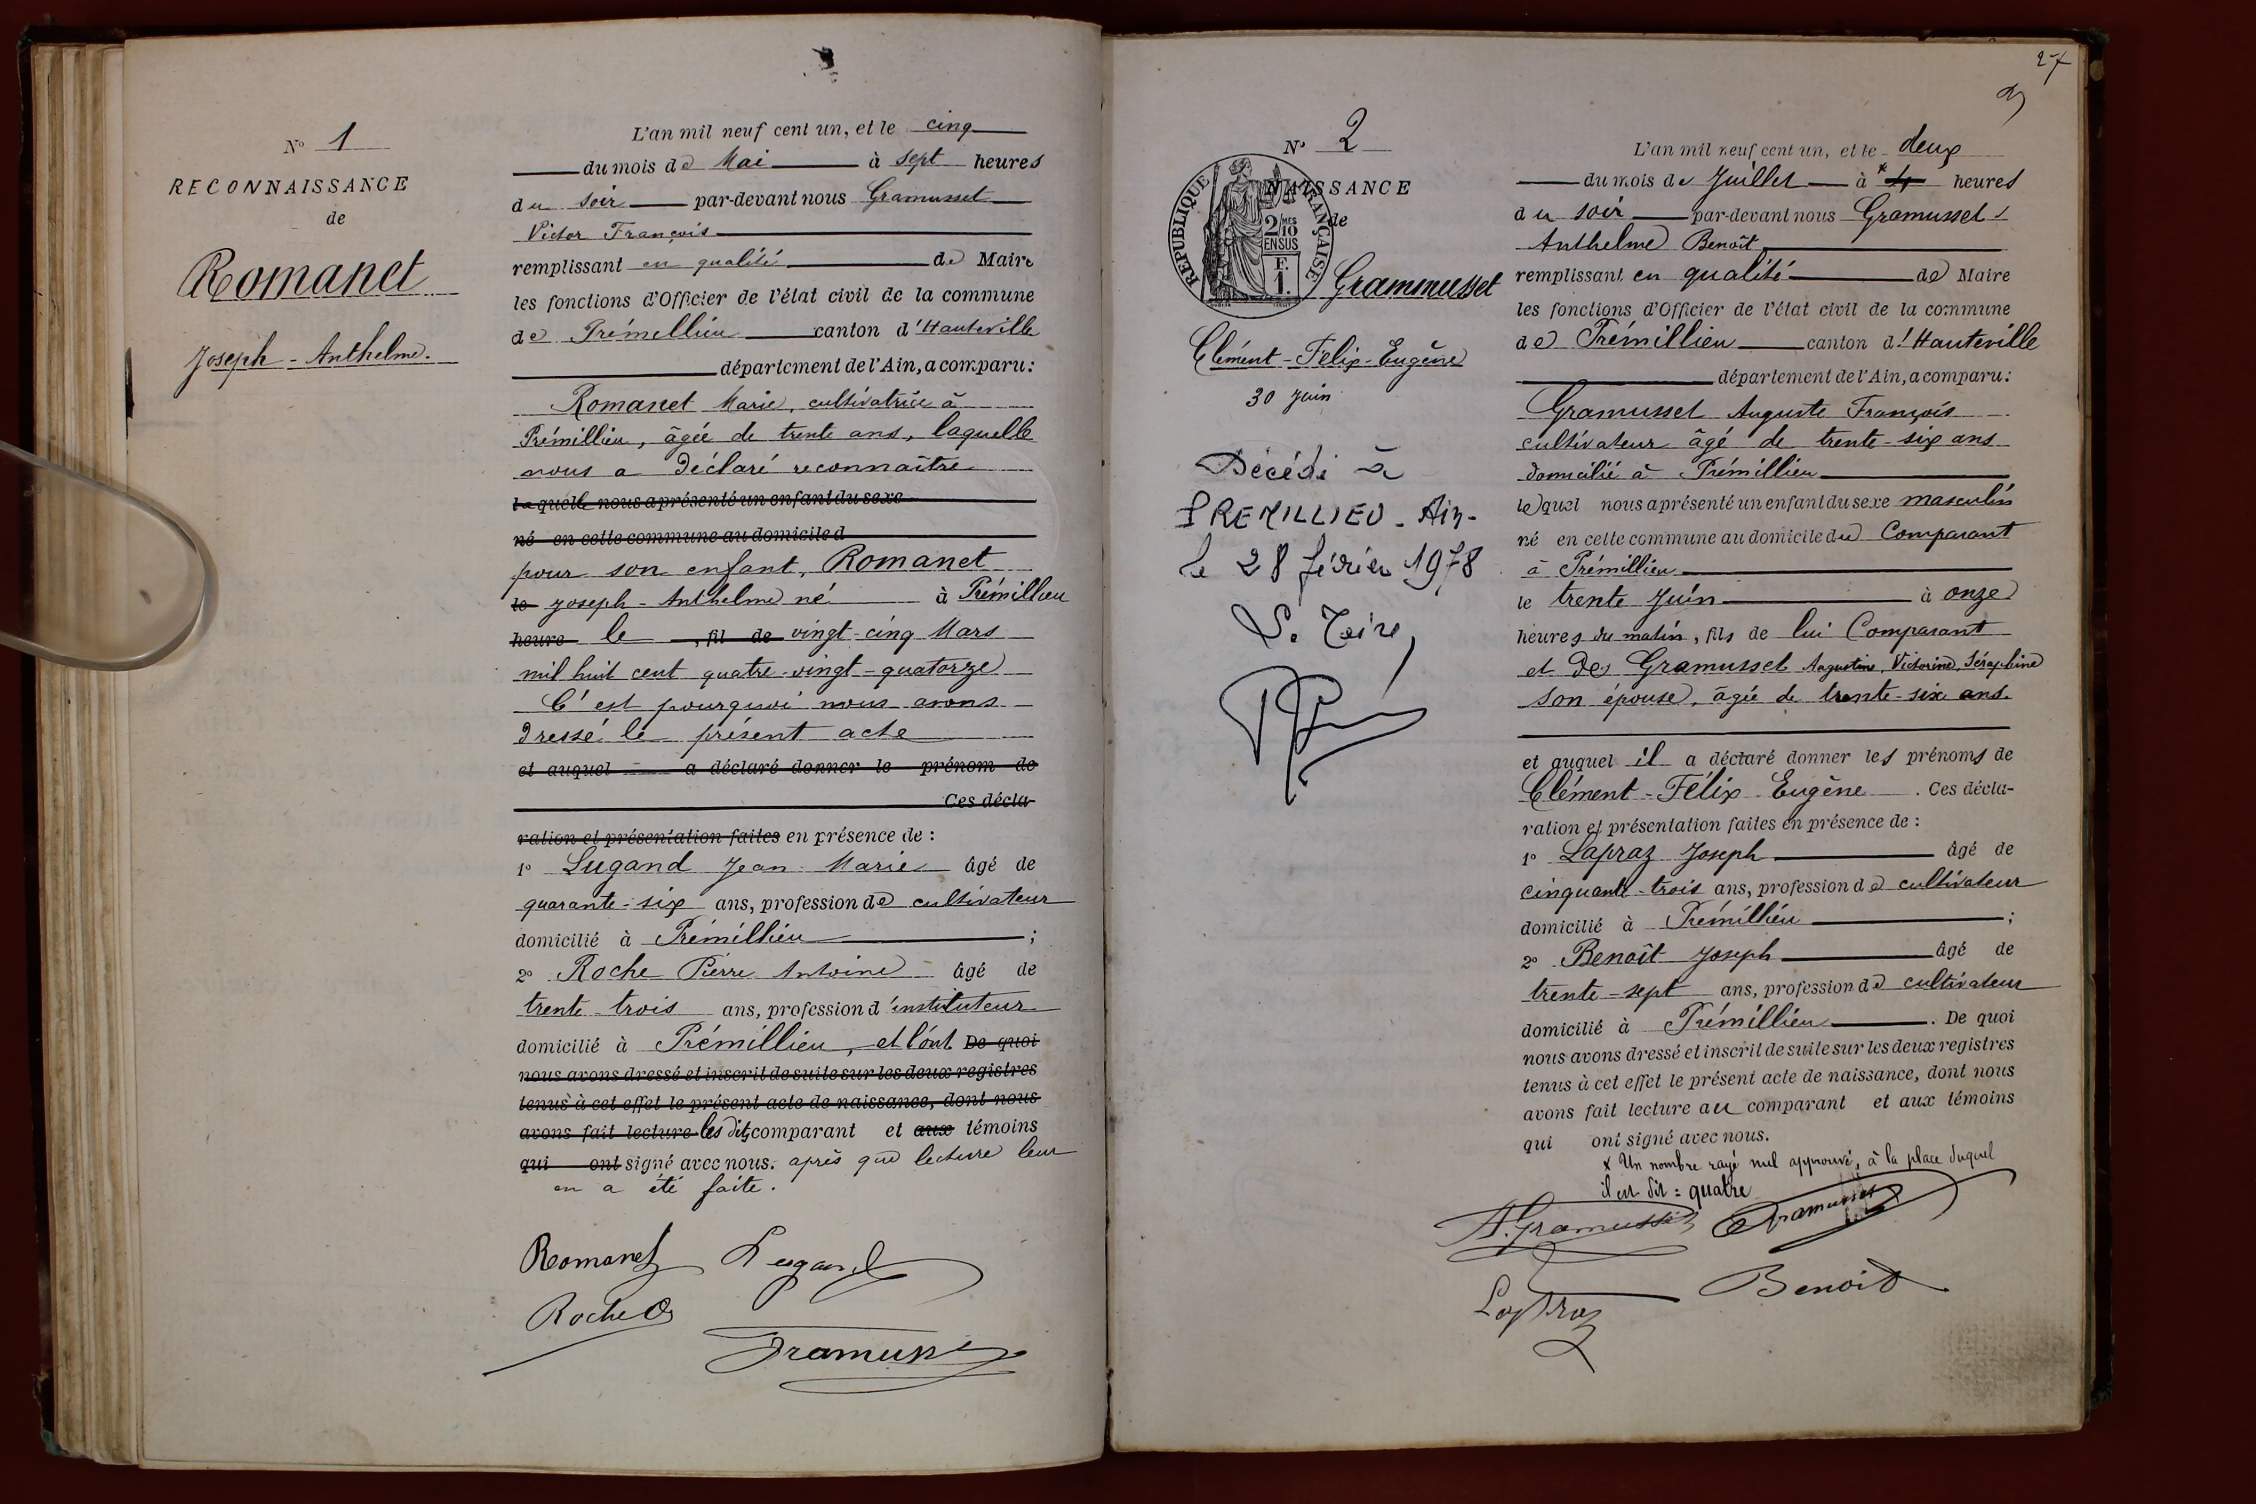 N° 1
RECONNAISSANCE
de
Romanet
Joseph - Anthelme.
L'an mil neuf cent un, et le cinq
du mois de Mai à sept heures
du soir par-devant nous Gramusset
Victor François
remplissant en qualité de Maire
les fonctions d'Officier de l'état civil de la commune
de Prémillieu canton d'Hauteville
département de l'Ain, a comparu:
Romanet Marie, cultivatrice à
Prémillieu, âgée de trente ans, laquelle
nous a déclaré reconnaître
laquelle nous a présenté un enfant du sexe
né en cette commune au domicile d
pour son enfant, Romanet
le Joseph - Anthelme né à Prémillieu
heure le , fil de vingt-cinq Mars
mil huit cent quatre-vingt-quatorze
C'est pourquoi nous avons
dressé le présent acte
et auquel a déclaré donner le prénom de
Ces décla-
ration et présentation faites en présence de :
1° Lugand Jean-Marie âgé de
quarante-six ans, profession de cultivateur
domicilié à Prémillieu ;
2° Roche Pierre Antoine âgé de
trente trois ans, profession d'instituteur
domicilié à Prémillieu, et l'ont De quoi
nous avons dressé et inscrit de suite sur les deux registres
tenus à cet effet le présent acte de naissance, dont nous
avons fait lecture les dits comparant et aux témoins
qui ont signé avec nous. après que lecture leur
en a été faite.
Romanet Lugand
Roche
Gramusset
27
N° 2
RÉPUBLIQUE FRANÇAISE
2/10 MES
EN SUS
F.
1.
NAISSANCE
de
Grammusset
Clément-Félix-Eugène
30 Juin
Décédé à
PREMILLIEU - Ain-
le 28 février 1978
Le Maire,
L'an mil neuf cent un, et le deux
du mois de Juillet à * 4 heures
du soir par-devant nous Gramusset
Anthelme Benoît
remplissant en qualité de Maire
les fonctions d'Officier de l'état civil de la commune
de Prémillieu canton d'Hauteville
département de l'Ain, a comparu:
Gramusset Auguste François
cultivateur âgé de trente-six ans
domicilié à Prémillieu
lequel nous a présenté un enfant du sexe masculin
né en cette commune au domicile du Comparant
à Prémillieu
le trente Juin à onze
heures du matin, fils de lui Comparant
et de Gramusset Augustine, Victorine, Séraphine
son épouse, âgée de trente-six ans.
et auquel il a déclaré donner les prénoms de
Clément-Félix-Eugène. Ces décla-
ration et présentation faites en présence de :
1° Lapraz Joseph âgé de
cinquante-trois ans, profession de cultivateur
domicilié à Prémillieu ;
2° Benoît Joseph âgé de
trente-sept ans, profession de cultivateur
domicilié à Prémillieu. De quoi
nous avons dressé et inscrit de suite sur les deux registres
tenus à cet effet le présent acte de naissance, dont nous
avons fait lecture au comparant et aux témoins
qui ont signé avec nous.
* Un nombre rayé nul approuvé, à la place duquel
il est dit : quatre
A. Gramusset Gramusset
Lapraz Benoit